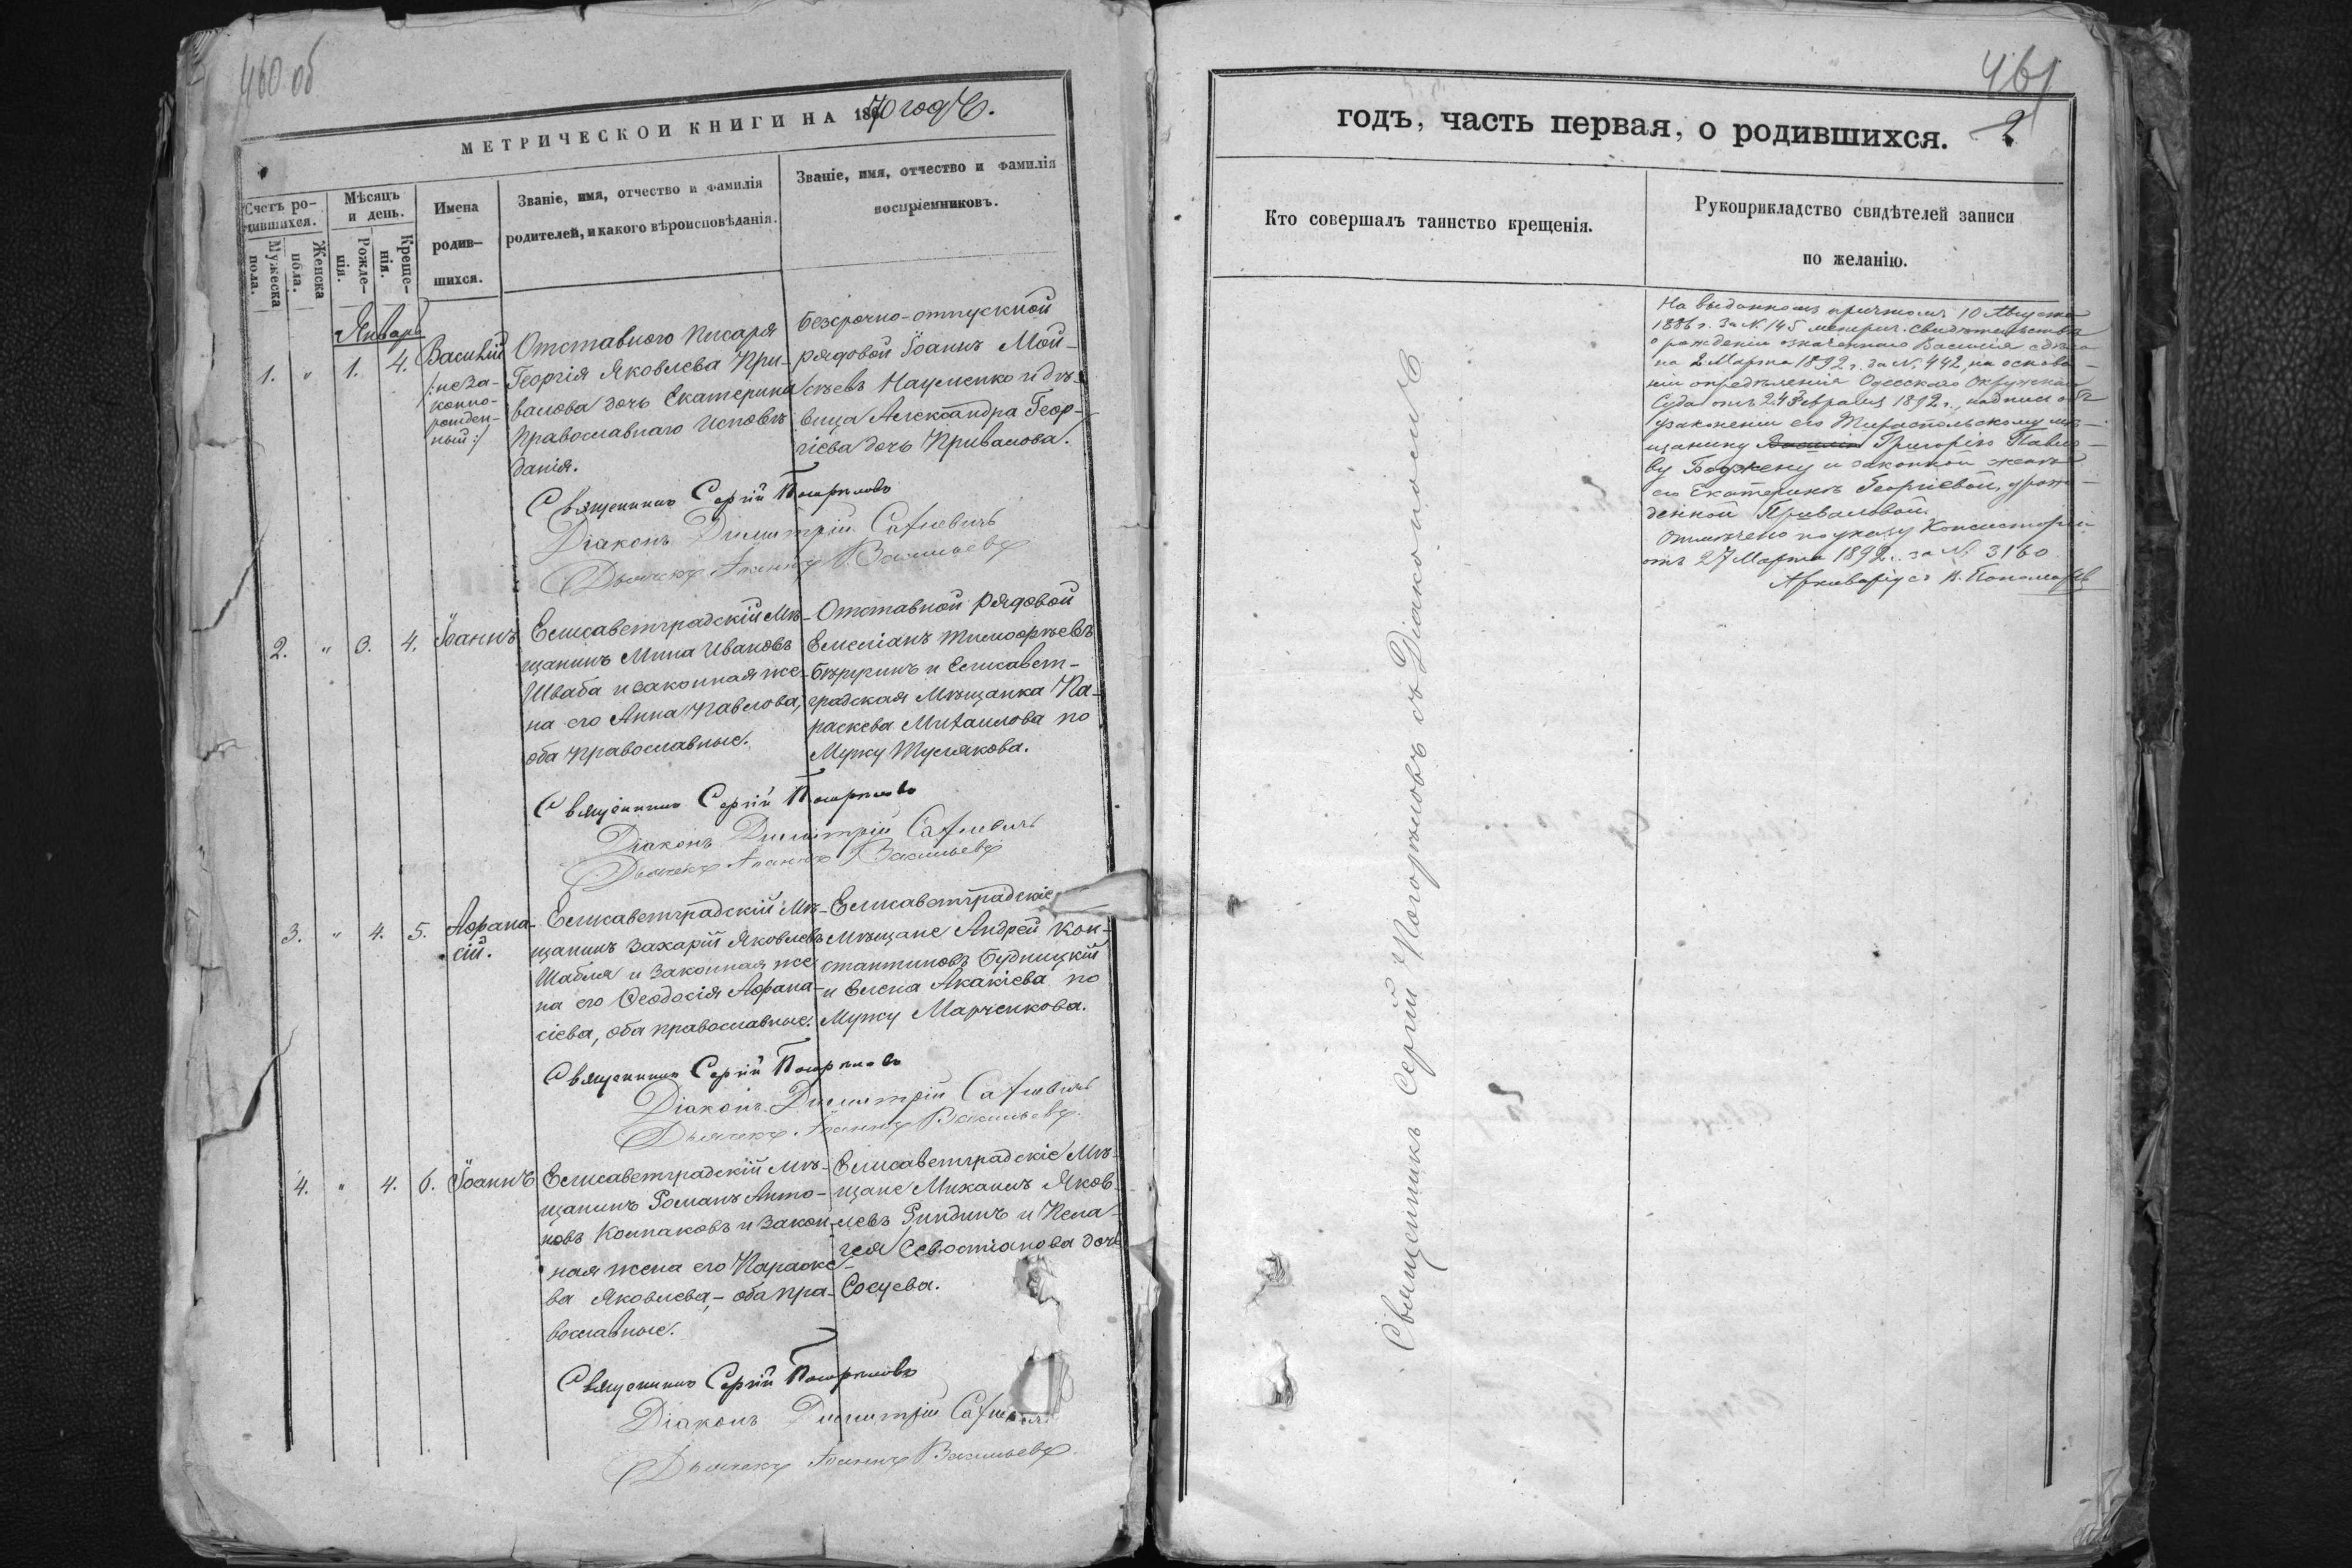 460 об
МЕТРИЧЕСКОЙ КНИГИ НА 1870 годъ.
Счетъ ро-
дившихся.
Мужеска
пола.
Женска
пола.
Мѣсяцъ
и день.
Рожде-
нія.
Креще-
нія.
Имена
родив-
шихся.
Званіе, имя, отчество и фамилія
родителей, и какого вѣроисповѣданія.
Званіе, имя, отчество и фамилія
воспріемниковъ.
Январь
1. " 1. 4.
Василій
/:неза-
конно-
рожден-
ный:/
Отставного Писаря
Георгія Яковлева При-
валова дочь Екатерина
Православнаго Исповѣ-
данія.
Безсрочно-отпускной
рядовой Іоаннъ Мой-
сѣевъ Науменко и дѣ-
вица Александра Геор-
гіева дочь Привалова.
Священникъ Сергій Погорѣловъ
Діаконъ Димитрій
Дьячекъ Іоаннъ Васильевъ
2. " 3. 4.
Іоаннъ
Елисаветградскій Мѣ-
щанинъ Мина Ивановъ
Шваба и законная же-
на его Анна Павлова,
оба Православные.
Отставной Рядовой
Емеліанъ Тимофѣевъ
и Елисавет-
градская Мѣщанка Па-
раскева Михаилова по
Мужу Туслякова.
Священникъ Сергій Погорѣловъ
Діаконъ Димитрій
Дьячекъ Іоаннъ Васильевъ
3. " 4. 5.
Аѳана-
сій.
Елисаветградскій Мѣ-
щанинъ Захарій Яковлевъ
Шабля и Законная же
на его Ѳеодосія Аѳана-
сіева, оба православные.
Елисаветградскіе
Мѣщане Андрей Кон-
стантиновъ Будницкій
и Елена Акакіева по
Мужу Марченкова.
Священникъ Сергій Погорѣловъ
Діаконъ Димитрій
Дьячекъ Іоаннъ Васильевъ
4. " 4. 6.
Іоаннъ
Елисаветградскій Мѣ-
щанинъ Романъ Анто-
новъ Колпаковъ и Закон-
ная жена его Параске-
ва Яковлева, - оба пра-
вославные.
Елисаветградскіе Мѣ-
щане Михаилъ Яков-
левъ Риндинъ и Пела-
гея Севостіанова дочь
Сосуева.
Священникъ Сергій Погорѣловъ
Діаконъ Димитрій
Дьячекъ Іоаннъ Васильевъ
461
годъ, часть первая, о родившихся. 2
Кто совершалъ таинство крещенія.
Рукоприкладство свидѣтелей записи
по желанію.
Священникъ Сергій Погорѣловъ съ Діакономъ
На выданномъ причтомъ 10 Августа
1886 г. за N. 145 метрич. свидѣтельствѣ
о рожденіи означеннаго Василія сдѣла-
на 2 Марта 1892 г. за N. 442, на основа-
ніи опредѣленія Одесскаго Окружнаго
Суда отъ 24 Февраля 1892 г., надпись объ
узаконеніи его Тирасполькому мѣ-
щанину Григорію Павло-
ву Боджену и законной женѣ
его Екатеринѣ Георгіевой, урож-
денной Приваловой.
Отмѣчено по указу Консисторіи
отъ 27 Марта 1892 г. за N. 3160
Архиваріусъ В. Пономарев